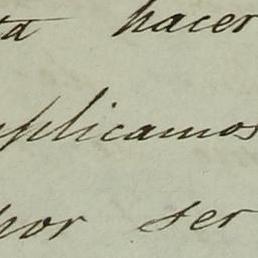 ta hacer
uplicamos
por ser